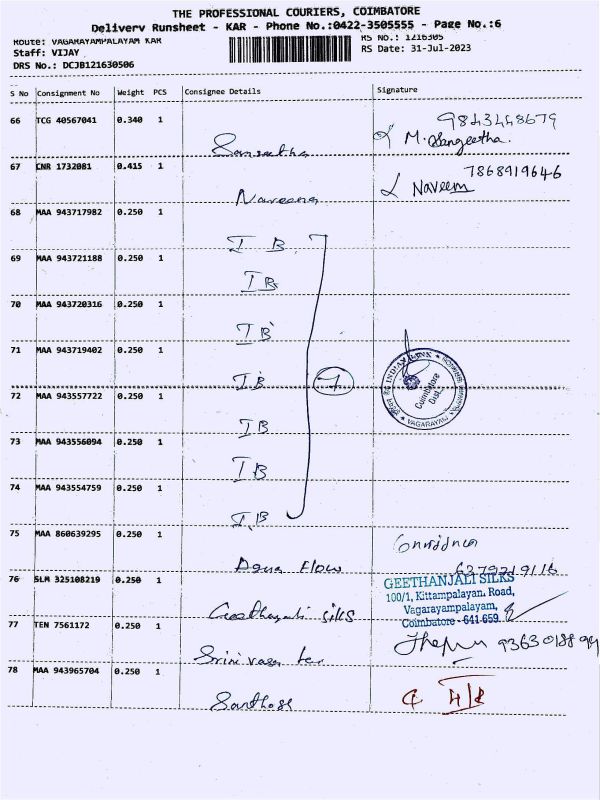 THE PROFESSIONAL COURIERS, COIMBATORE
Delivery Runsheet - KAR - Phone No.:0422-3505555 - Page No.:6
Route: VAGARAYAMPALAYAM KAR
RS No.: 1216305
Staff: VIJAY
RS Date: 31-Jul-2023
DRS No.: DCJB121630506
S No Consignment No Weight PCS Consignee Details Signature
66 TCG 40567041 0.340 1
9843448679
M. Sangeetha.
67 CNR 1732081 0.415 1
7868919646
Naveena Naveem
68 MAA 943717982 0.250 1
I B
69 MAA 943721188 0.250 1
IB
70 MAA 943720316 0.250 1
IB
71 MAA 943719402 0.250 1
IB 7
INDIAN BANK
Coimbatore
Dist.
VAGARAYAM
72 MAA 943557722 0.250 1
IB
73 MAA 943556094 0.250 1
IB
74 MAA 943554759 0.250 1
I.B
75 MAA 860639295 0.250 1
Flow
6379219116
76 SLM 325108219 0.250 1
GEETHANJALI SILKS
100/1, Kittampalayan. Road,
Vagarayampalayam,
Coimbatore - 641 659.
Geethanjali silks
77 TEN 7561172 0.250 1
Srinivasa tex
78 MAA 943965704 0.250 1
Santhosh